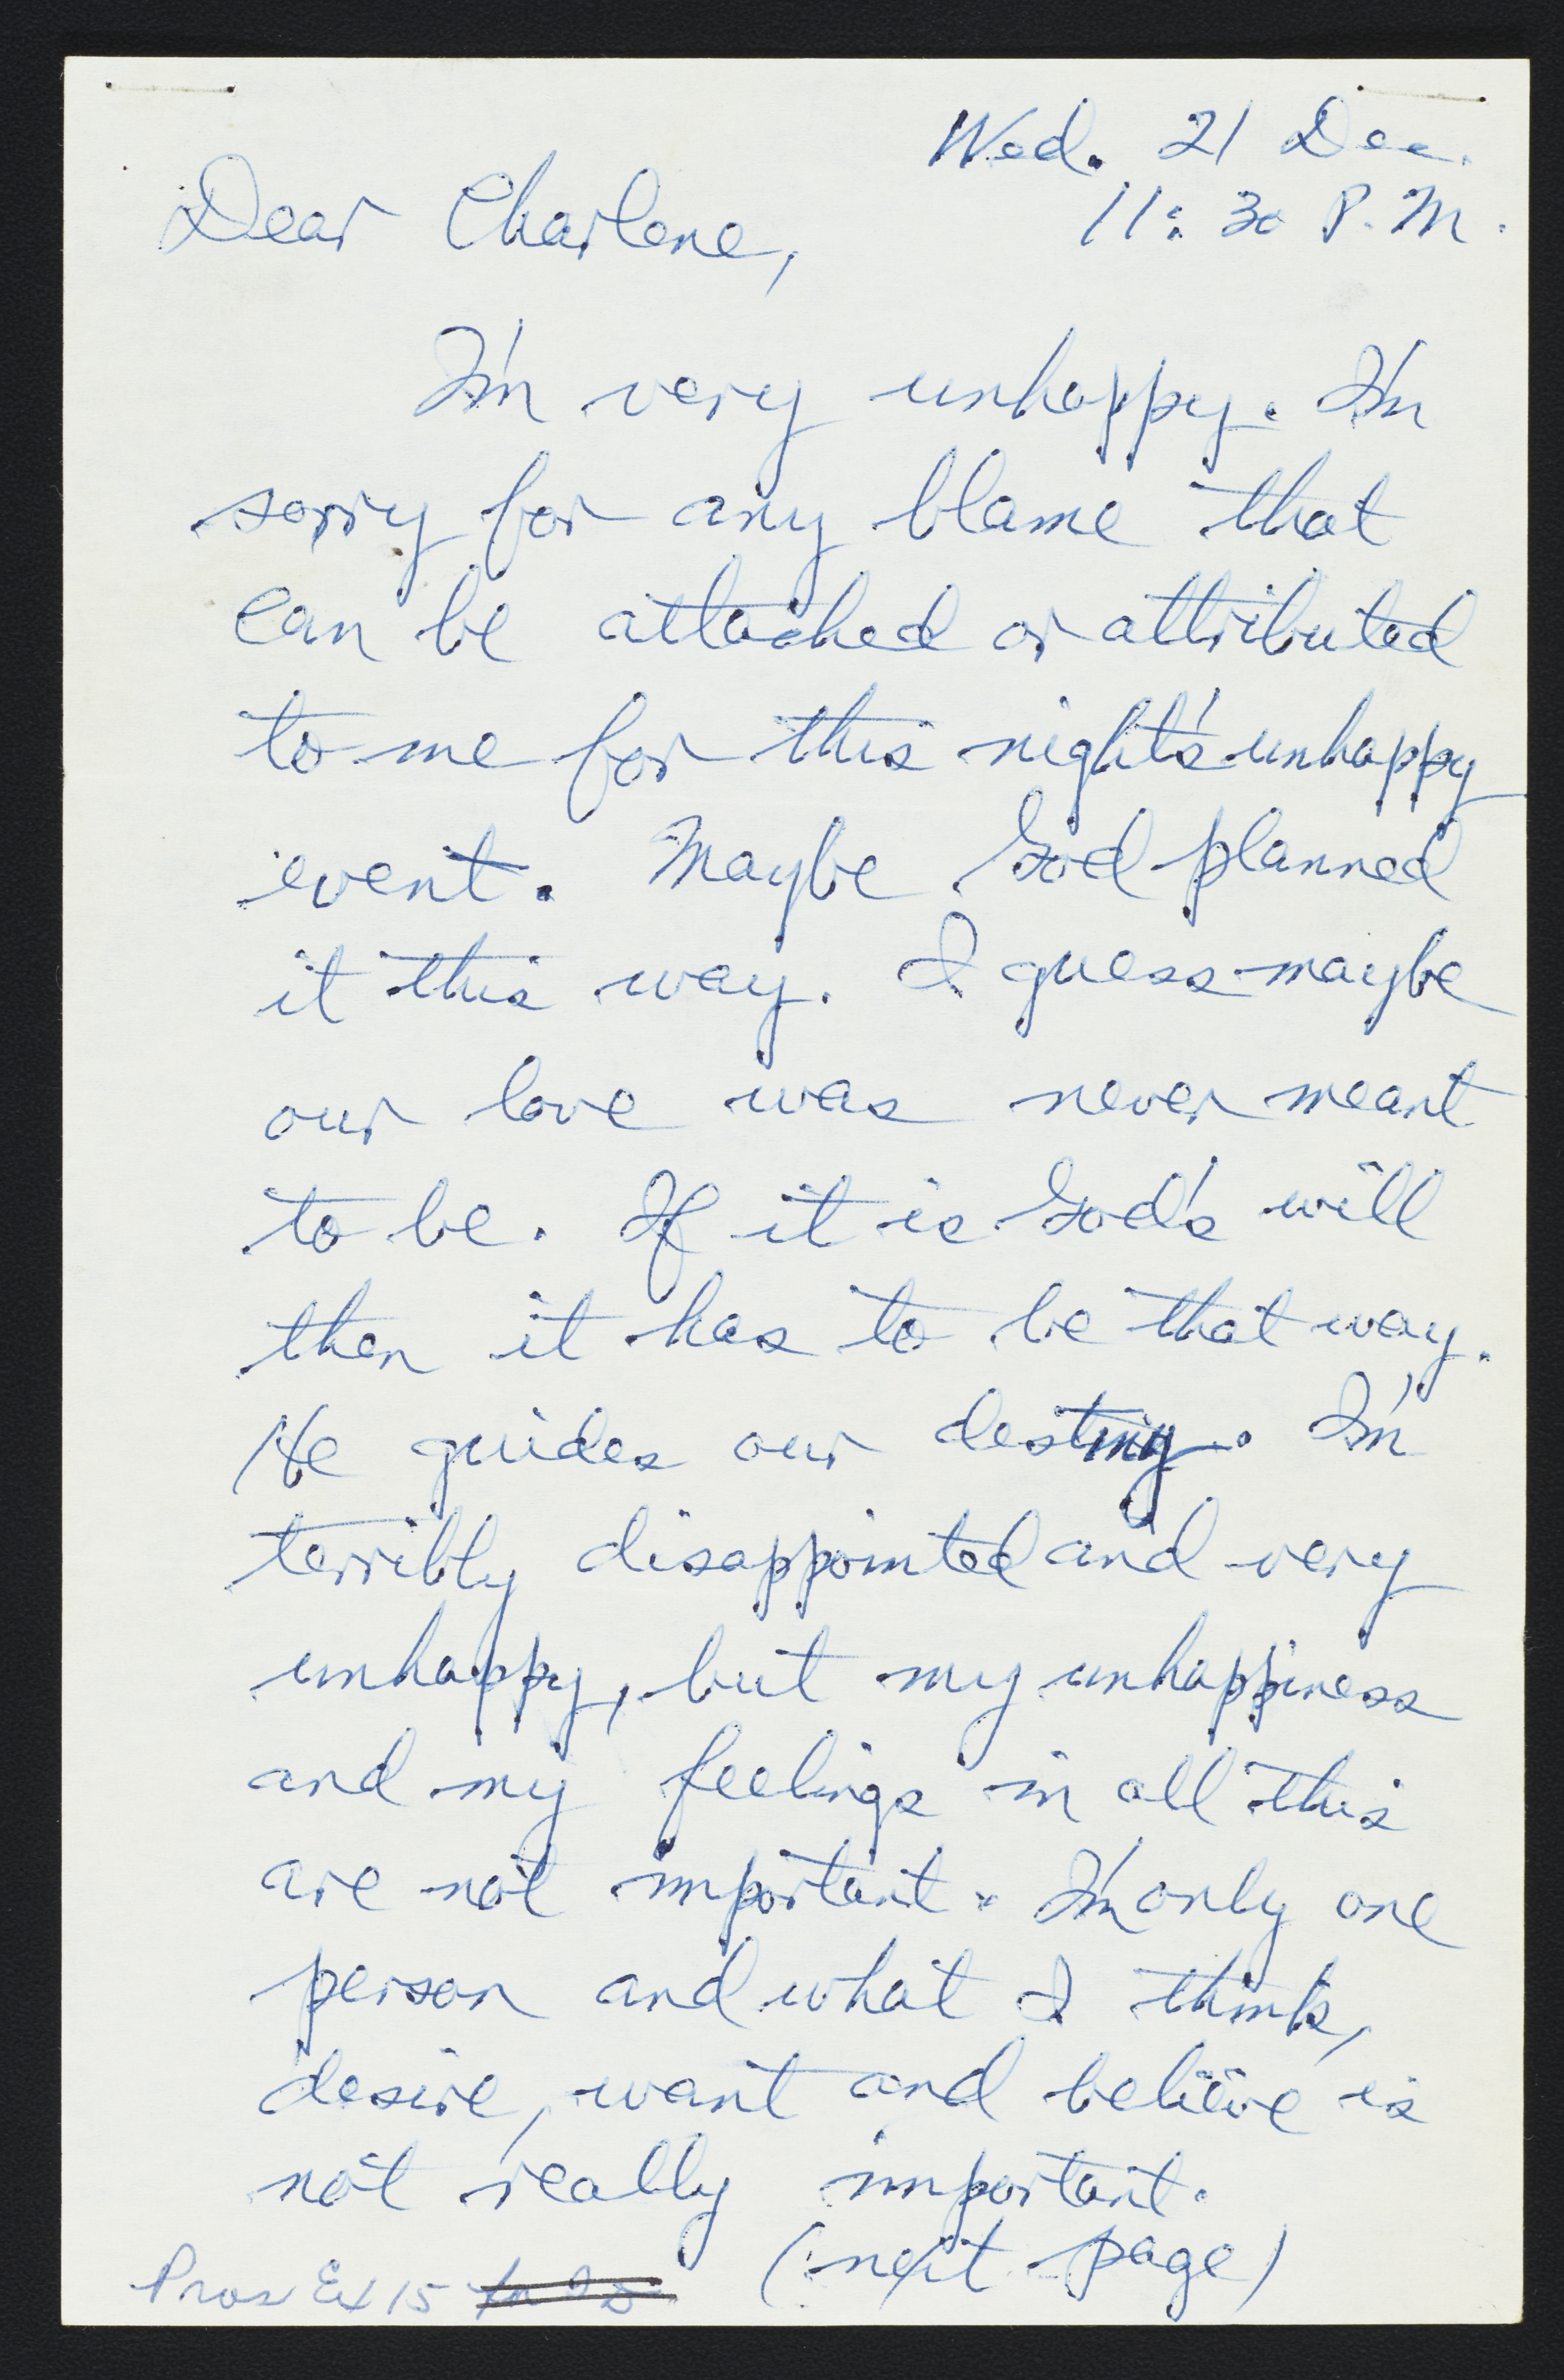 Wed. 21 Dec.
11:30 P.M.
Dear Charlene,
I'm very unhappy. I'm
sorry for any blame that
can be attached or attributed
to me for this night's unhappy
event. Maybe God planned
it this way. I guess maybe
our love was never meant
to be. If it is God's will
then it has to be that way.
He guides our destiny. I'm
terribly disappointed and very
unhappy, but my unhappiness
and my feelings in all this
are not important. I'm only one
person and what I think,
desire, want and believe is
not really important.
(next page)
Pros Ex 15